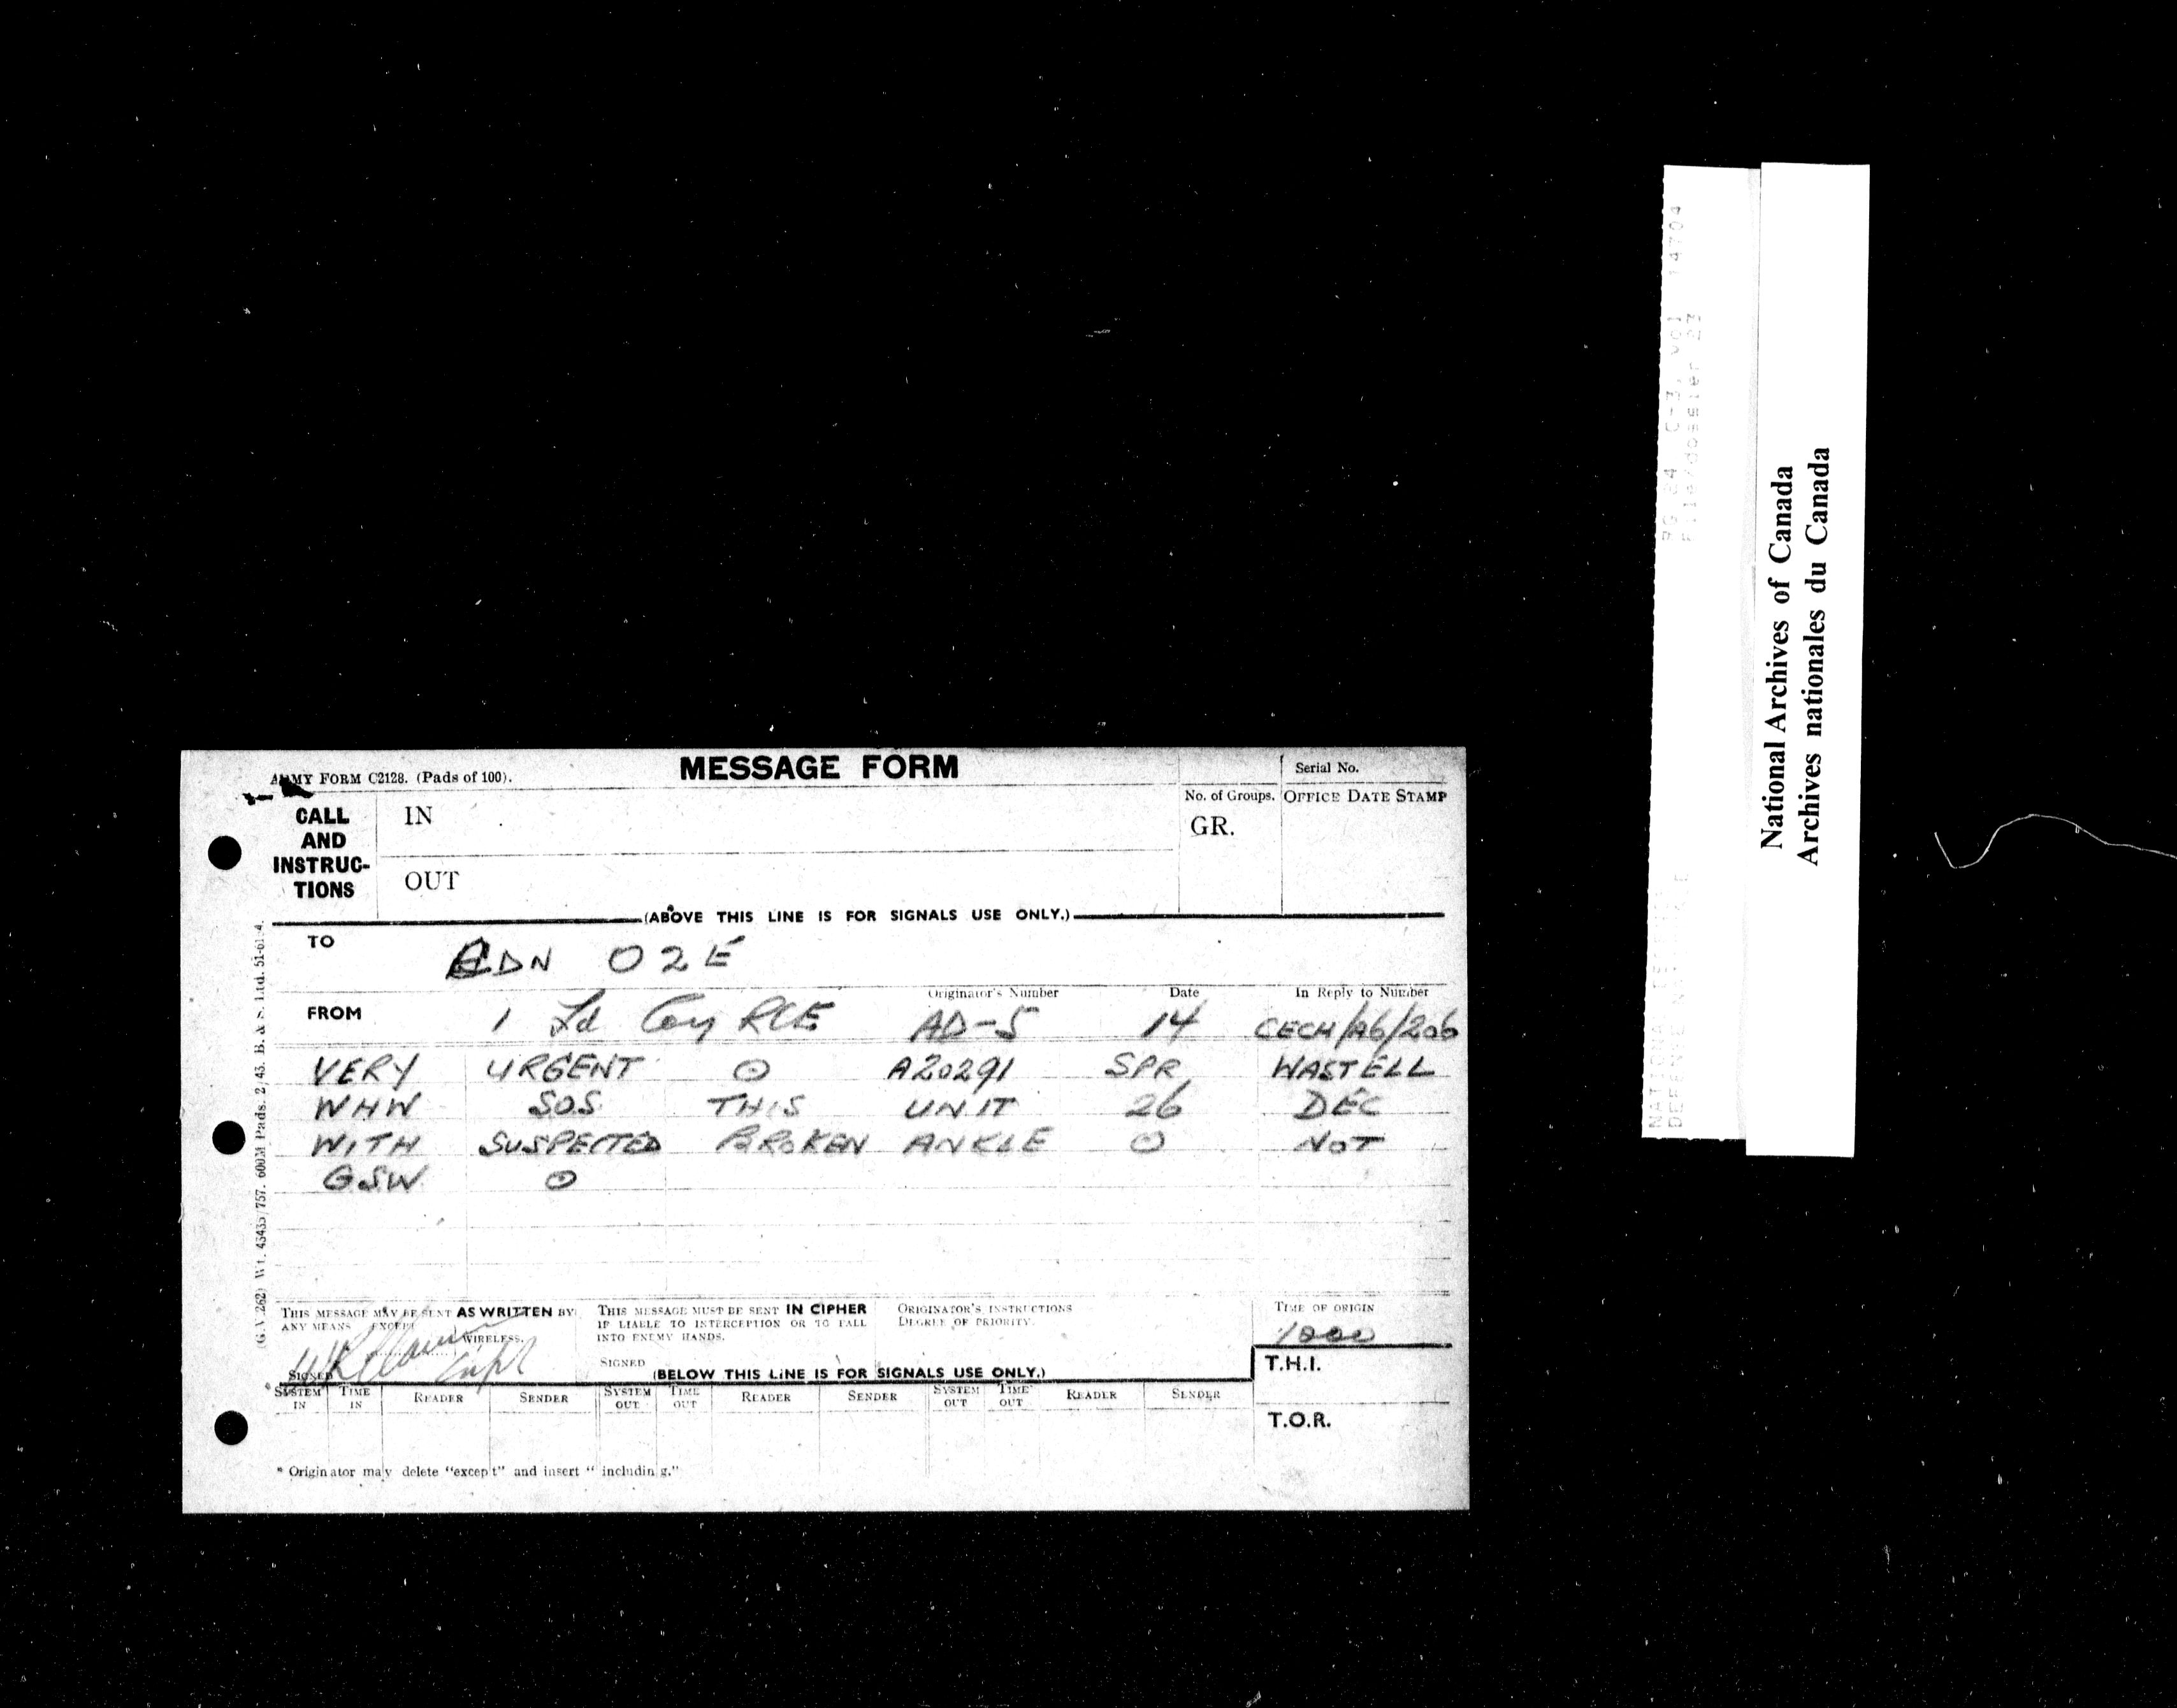 ARMY FORM C2128. (Pads of 100).
MESSAGE FORM
Serial No.
CALL AND INSTRUC- TIONS
IN
OUT
No. of Groups.
GR.
OFFICE DATE STAMP
(ABOVE THIS LINE IS FOR SIGNALS USE ONLY.)
TO
CDN O2E
FROM
Originator's Number
Date
In Reply to Number
1 Fd Coy RCE AD-5 14 CECH/A6/206
VERY URGENT ⊙ A20291 SPR WASTELL
WHW SOS THIS UNIT 26 DEC
WITH SUSPECTED BROKEN ANKLE O NOT
GSW ⊙
THIS MESSAGE MAY BE SENT AS WRITTEN BY
ANY MEANS EXCEPT
WIRELESS.
SIGNED
Capt
THIS MESSAGE MUST BE SENT IN CIPHER
IF LIABLE TO INTERCEPTION OR TO FALL
INTO ENEMY HANDS.
SIGNED
ORIGINATOR'S INSTRUCTIONS
DEGREE OF PRIORITY.
TIME OF ORIGIN
1000
(BELOW THIS LINE IS FOR SIGNALS USE ONLY.)
T.H.I.
T.O.R.
SYSTEM IN TIME IN READER SENDER SYSTEM OUT TIME OUT READER SENDER SYSTEM OUT TIME OUT READER SENDER
* Originator may delete "except" and insert "including."
600M Pads. 2/43. B. & S. Ltd. 51-61-4.
National Archives of Canada
Archives nationales du Canada